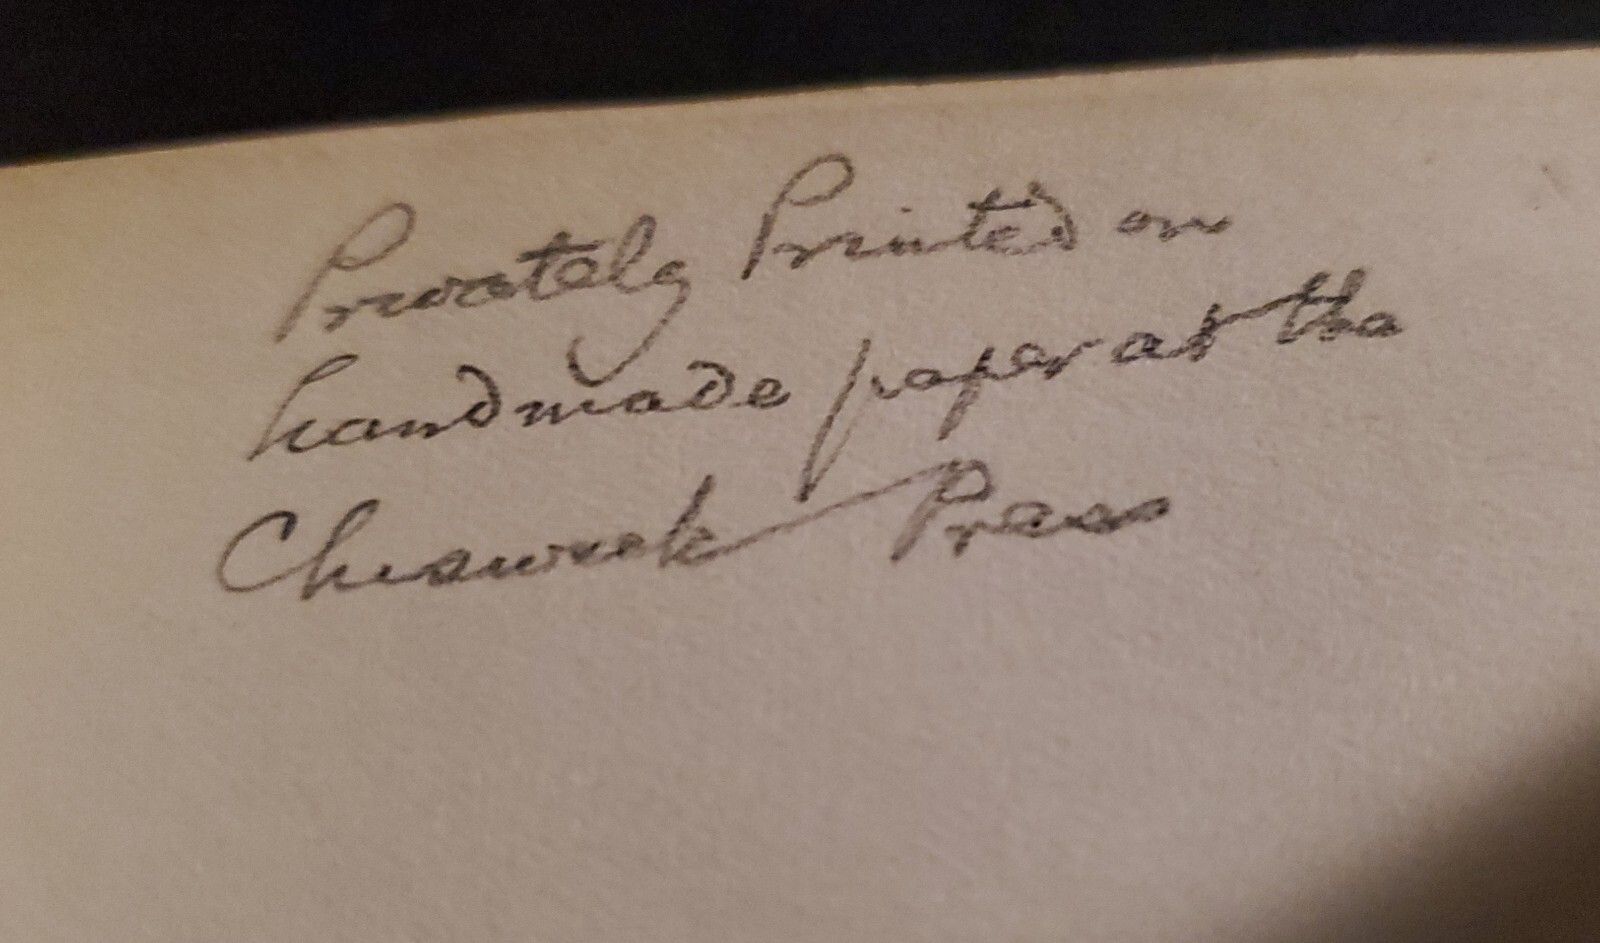 Privately Printed on
handmade paper at the
Chiswick Press